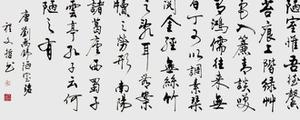 惟吾德馨
苔痕上階綠草
色入簾青談笑
有鴻儒往來無
白丁可以調素琴
閱金經無絲竹
之亂耳無案
牘之勞形南陽
諸葛廬西蜀子
雲亭孔子云何
陋之有
唐劉禹錫陋室銘
書